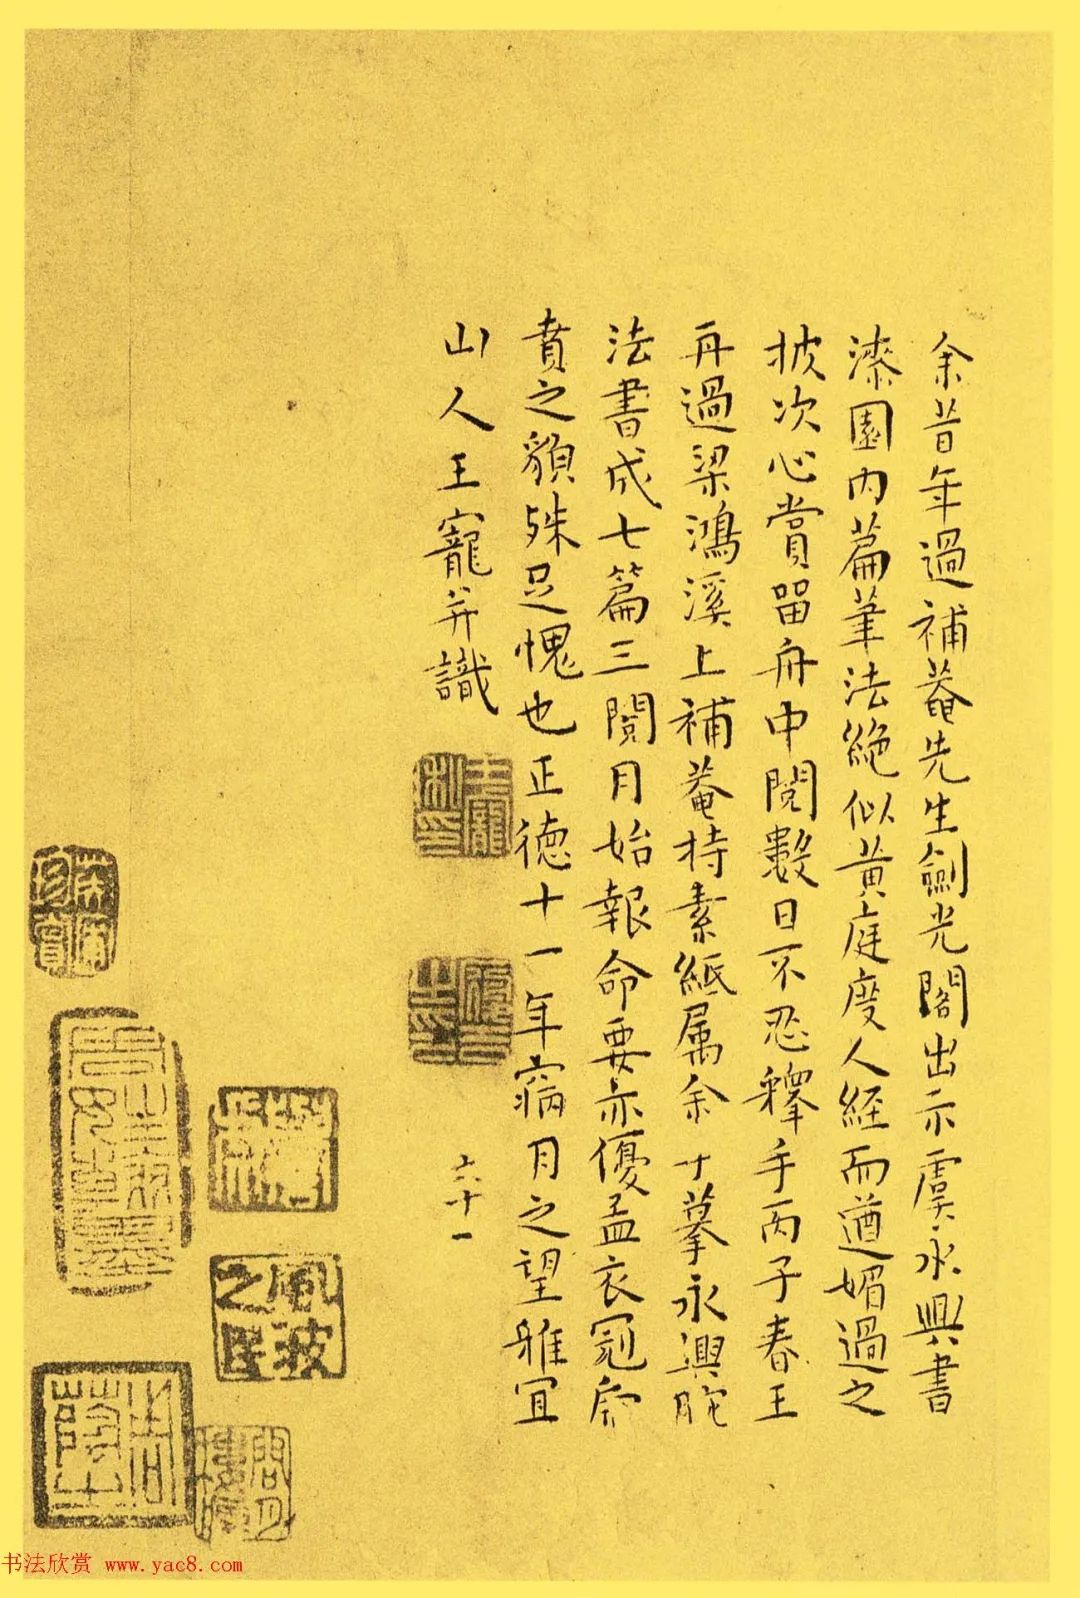 余昔年過補菴先生劍光閣出示虞永興書
漆園內篇筆法絕似黃庭度人經而遒媚過之
披次心賞留舟中閱數日不忍釋手丙子春王
再過梁鴻溪上補菴持素紙属余寸摹永興
法書成七篇三閱月始報命要亦優孟衣冠
賁之貌殊足愧也正德十一年窉月之望雅宜
山人王寵并識
六十一
王寵私印
風波之民
书法欣赏 www.yac8.com